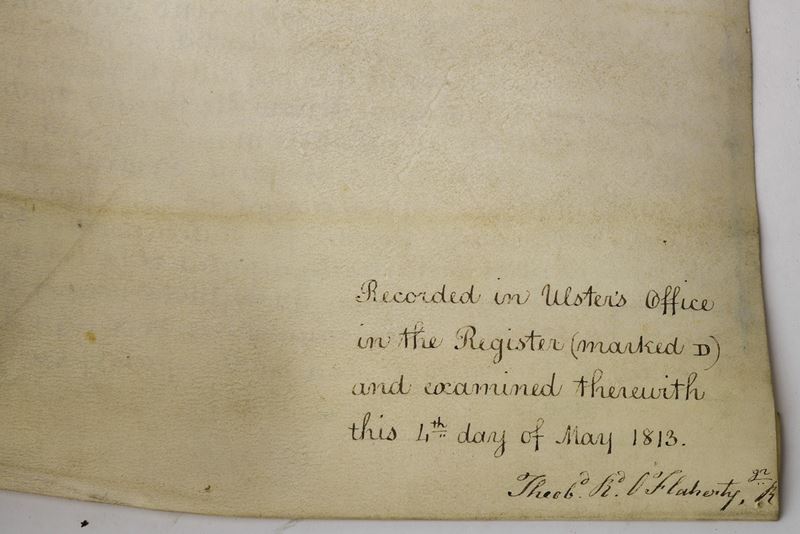 Recorded in Ulster's Office
in the Register (marked D)
and examined therewith
this 4th day of May 1813.
Theobd. Rd. O'Flaherty,